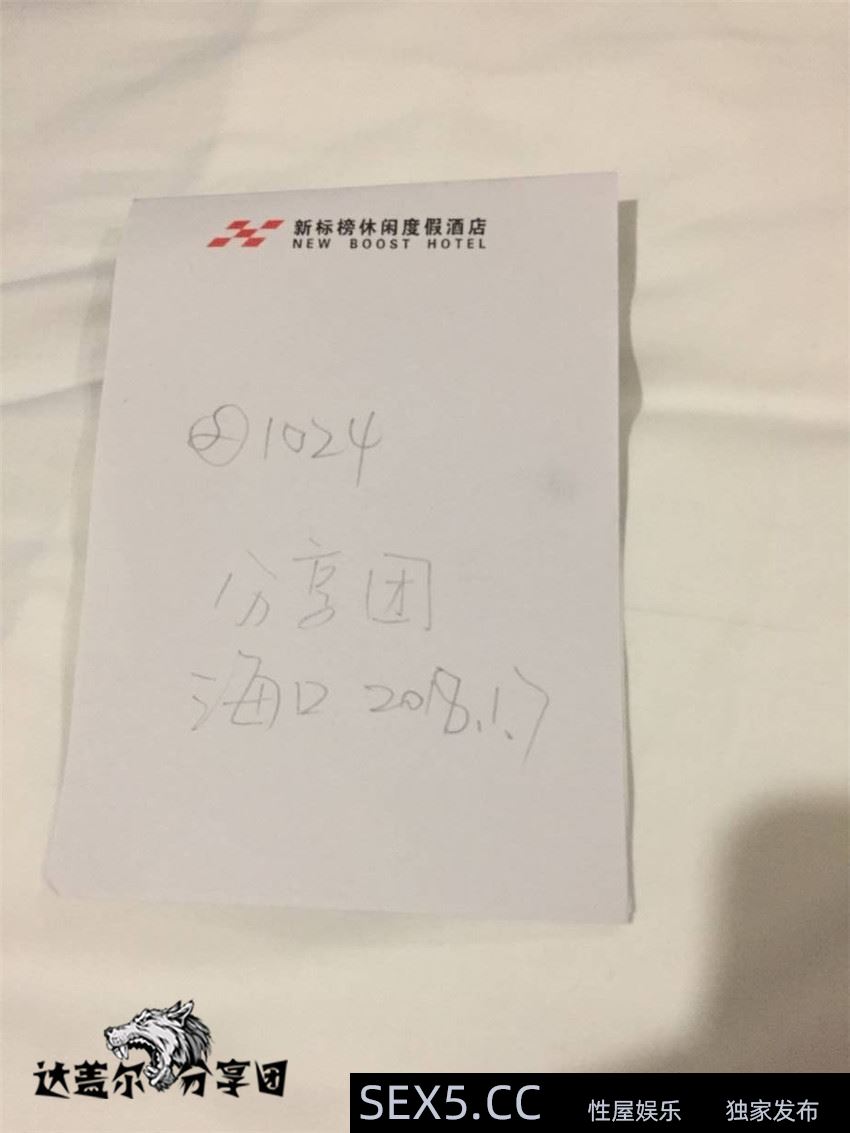 新标榜休闲度假酒店
NEW BOOST HOTEL
1024
分享团
海口 2018.1.7
达盖尔分享团
SEX5.CC 性屋娱乐 独家发布